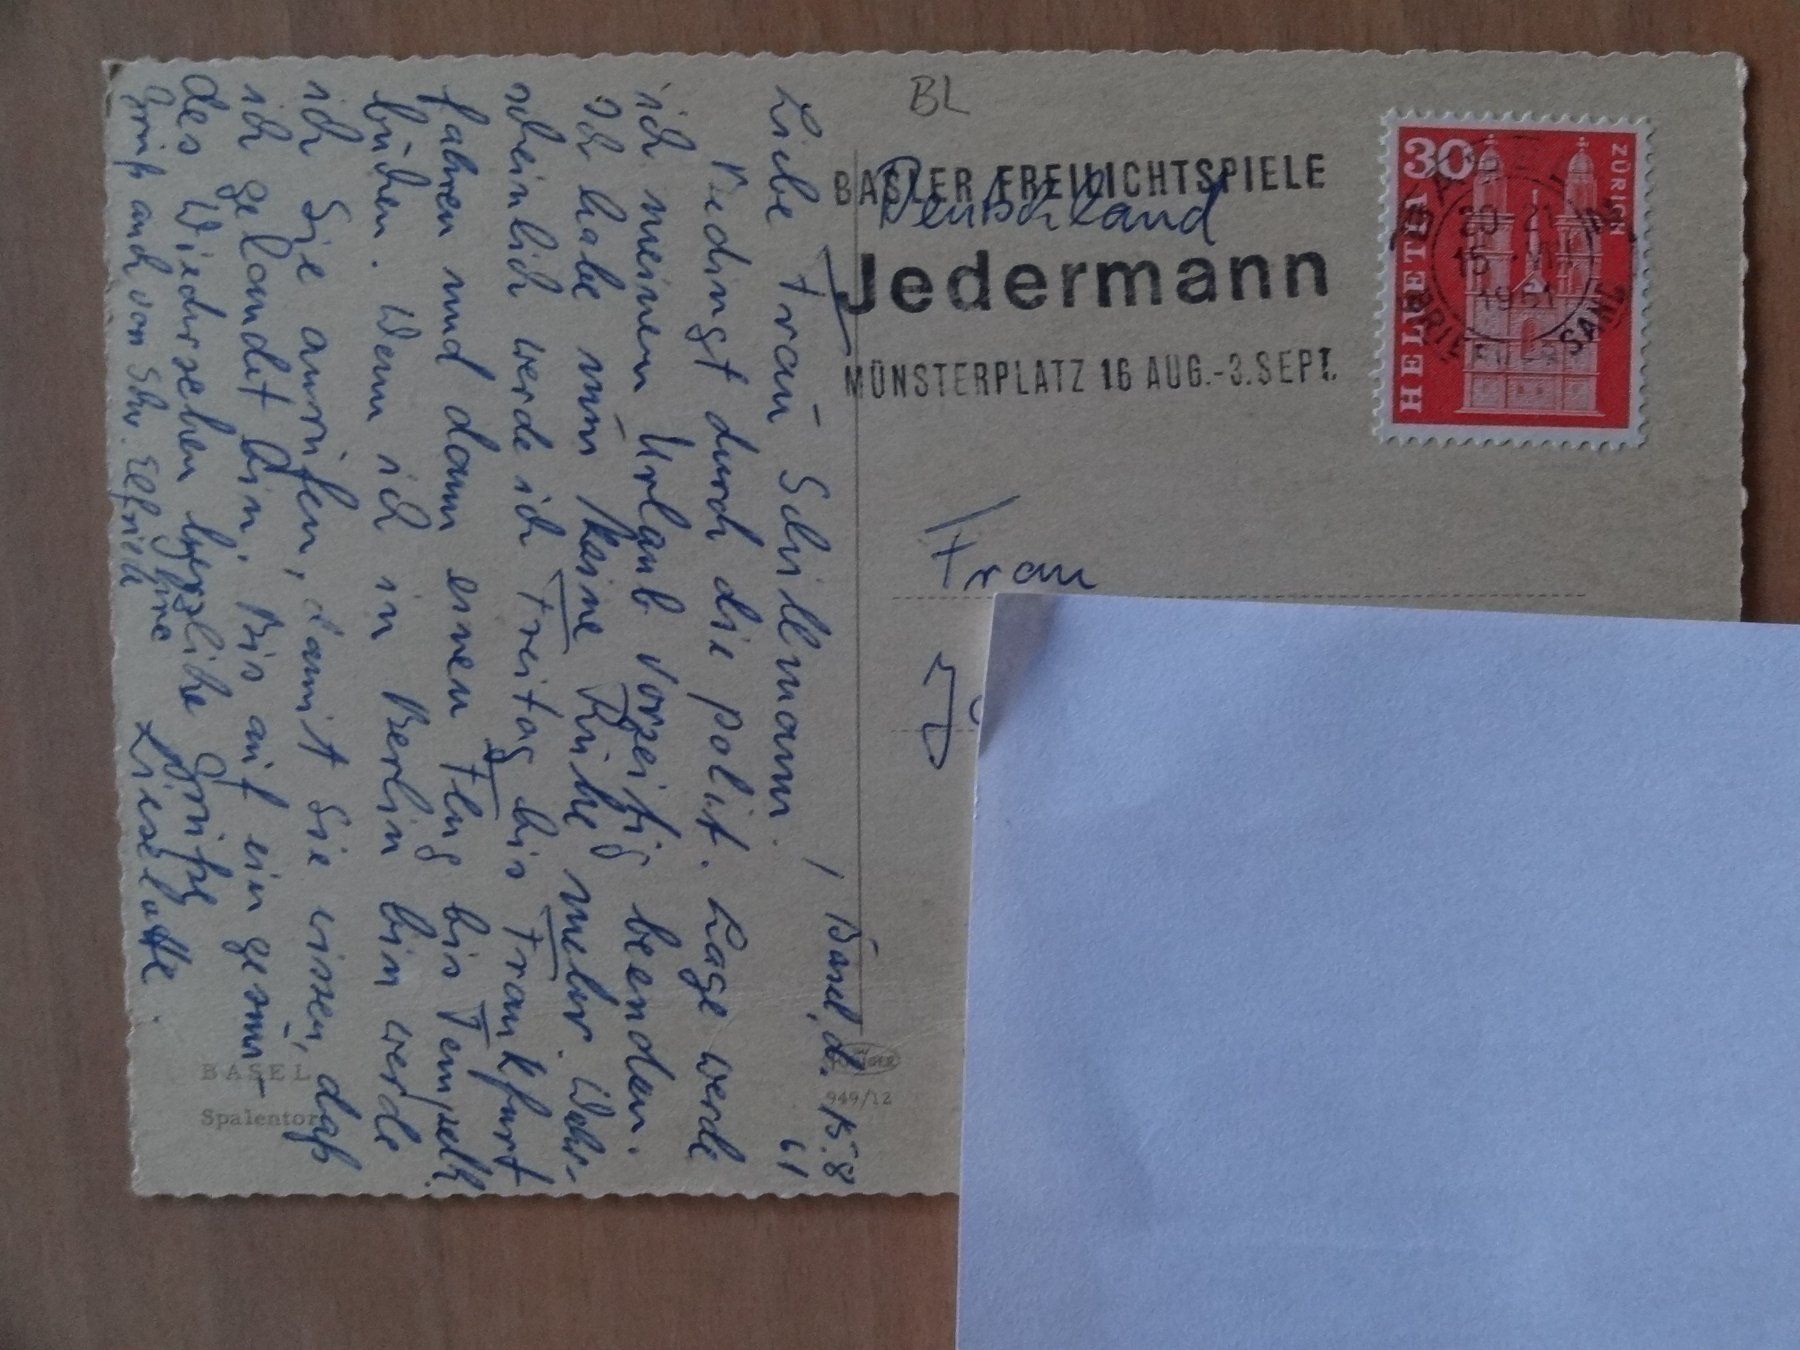 BL
Deutschland
BASLER FREILICHTSPIELE
Jedermann
MÜNSTERPLATZ 16 AUG.-3.SEPT.
HELVETIA
30
ZÜRICH
20-21
15
1961
Frau
Basel, d. 15.8
61
Liebe Frau Schillmann!
Bedingt durch die polit. Lage werde
ich meinen Urlaub vorzeitig beenden.
Ich habe nun keine Ruhe mehr. Wahr-
scheinlich werde ich Freitag bis Frankfurt
fahren und dann einen Flug bis Tempelh.
buchen. Wenn ich in Berlin bin werde
ich Sie anrufen, damit Sie wissen, daß
ich gelandet bin. Bis auf ein gesun-
des Wiedersehen herzliche Grüße
Liselotte.
Gruß auch von Schw. Elfriede
BASEL
Spalentor
949/12